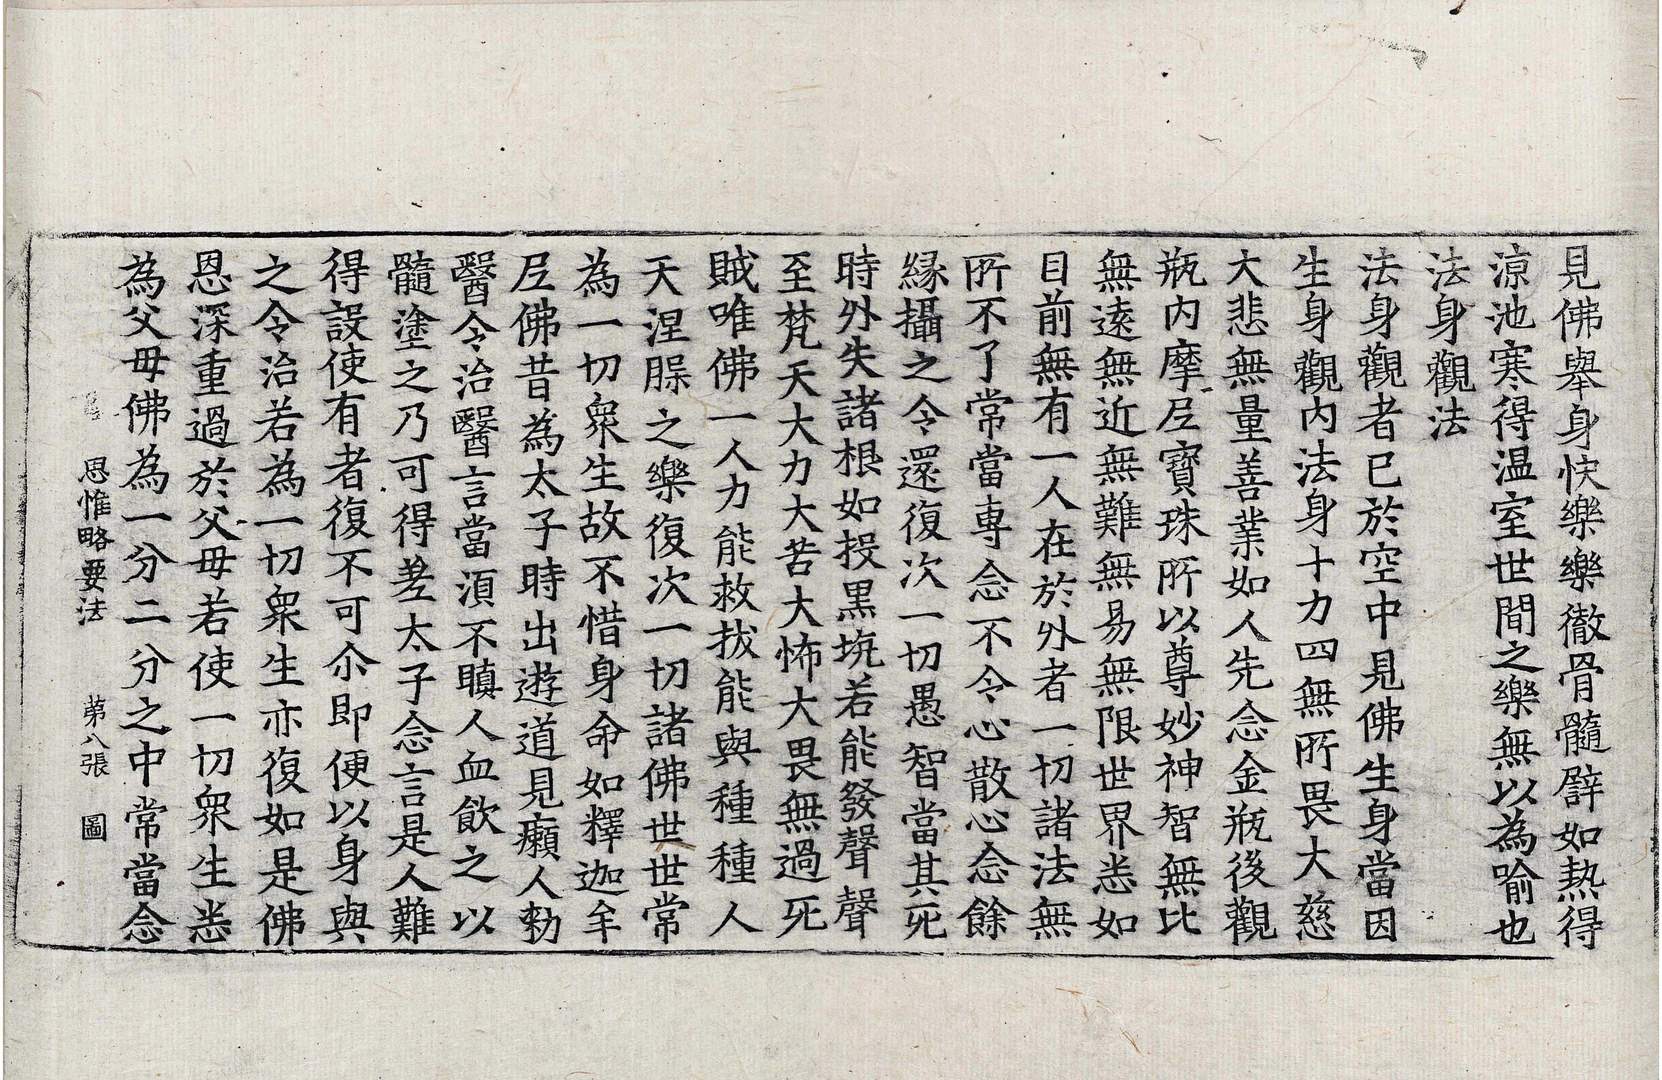 見佛舉身快樂樂徹骨髓譬如熱得
涼池寒得溫室世間之樂無以為喻也
法身觀法
法身觀者已於空中見佛生身當因
生身觀內法身十力四無所畏大慈
大悲無量善業如人先念金瓶後觀
瓶內摩尼寶珠所以尊妙神智無比
無遠無近無難無易無限世界悉如
目前無有一人在於外者一切諸法無
所不了常當專念不令心散心念餘
緣攝之令還復次一切愚智當其死
時外失諸根如投黑坑若能發聲聲
至梵天大力大苦大怖大畏無過死
賊唯佛一人力能救拔能與種種人
天涅槃之樂復次一切諸佛世世常
為一切眾生故不惜身命如釋迦牟
尼佛昔為太子時出遊道見癩人勑
醫令治醫言當須不瞋人血飲之以
髓塗之乃可得差太子念言是人難
得設使有者復不可尒即便以身與
之令治若為一切眾生亦復如是佛
恩深重過於父母若使一切眾生悉
為父母佛為一分二分之中常當念
思惟略要法 第八張 圖